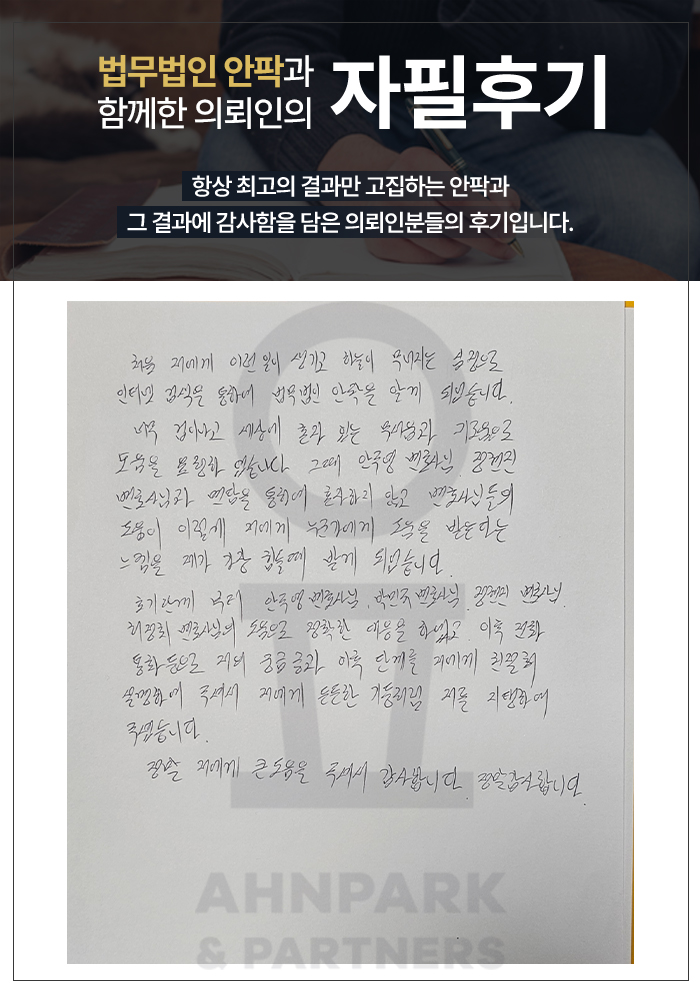 법무법인 안팍과
함께한 의뢰인의
자필후기
항상 최고의 결과만 고집하는 안팍과
그 결과에 감사함을 담은 의뢰인분들의 후기입니다.
처음 저에게 이런일이 생기고 하늘이 무너지는 심정으로
인터넷 검색을 통하여 법무법인 안팍을 알게 되었습니다.
너무 겁이나고 세상에 혼자 있는 무서움과 괴로움으로
도움을 요청하 였습니다 그때 안주영 변호사님 정현진
변호사님과 면담을 통하여 혼자하지 않고 변호사님들의
도움이 이렇게 저에게 누군가에게 도움을 받는다는
느낌을 제가 가장 힘들때 받게 되었습니다.
초기단계 부터 변호사님, 박민국 변호사님 정현진 변호사님.
허정회 변호사님의 도움으로 정확한 대응을 하였고 이후 전화
통화등으로 저의 궁금금과 이후 단계를 저에게 친절히
설명하여 주셔서 저에게 든든한 기둥처럼 저를 지탱하여
주셨습니다.
정말 저에게 큰도움을 주셔서 감사합니다. 정말감사합니다.
AHNPARK
& PARTNERS